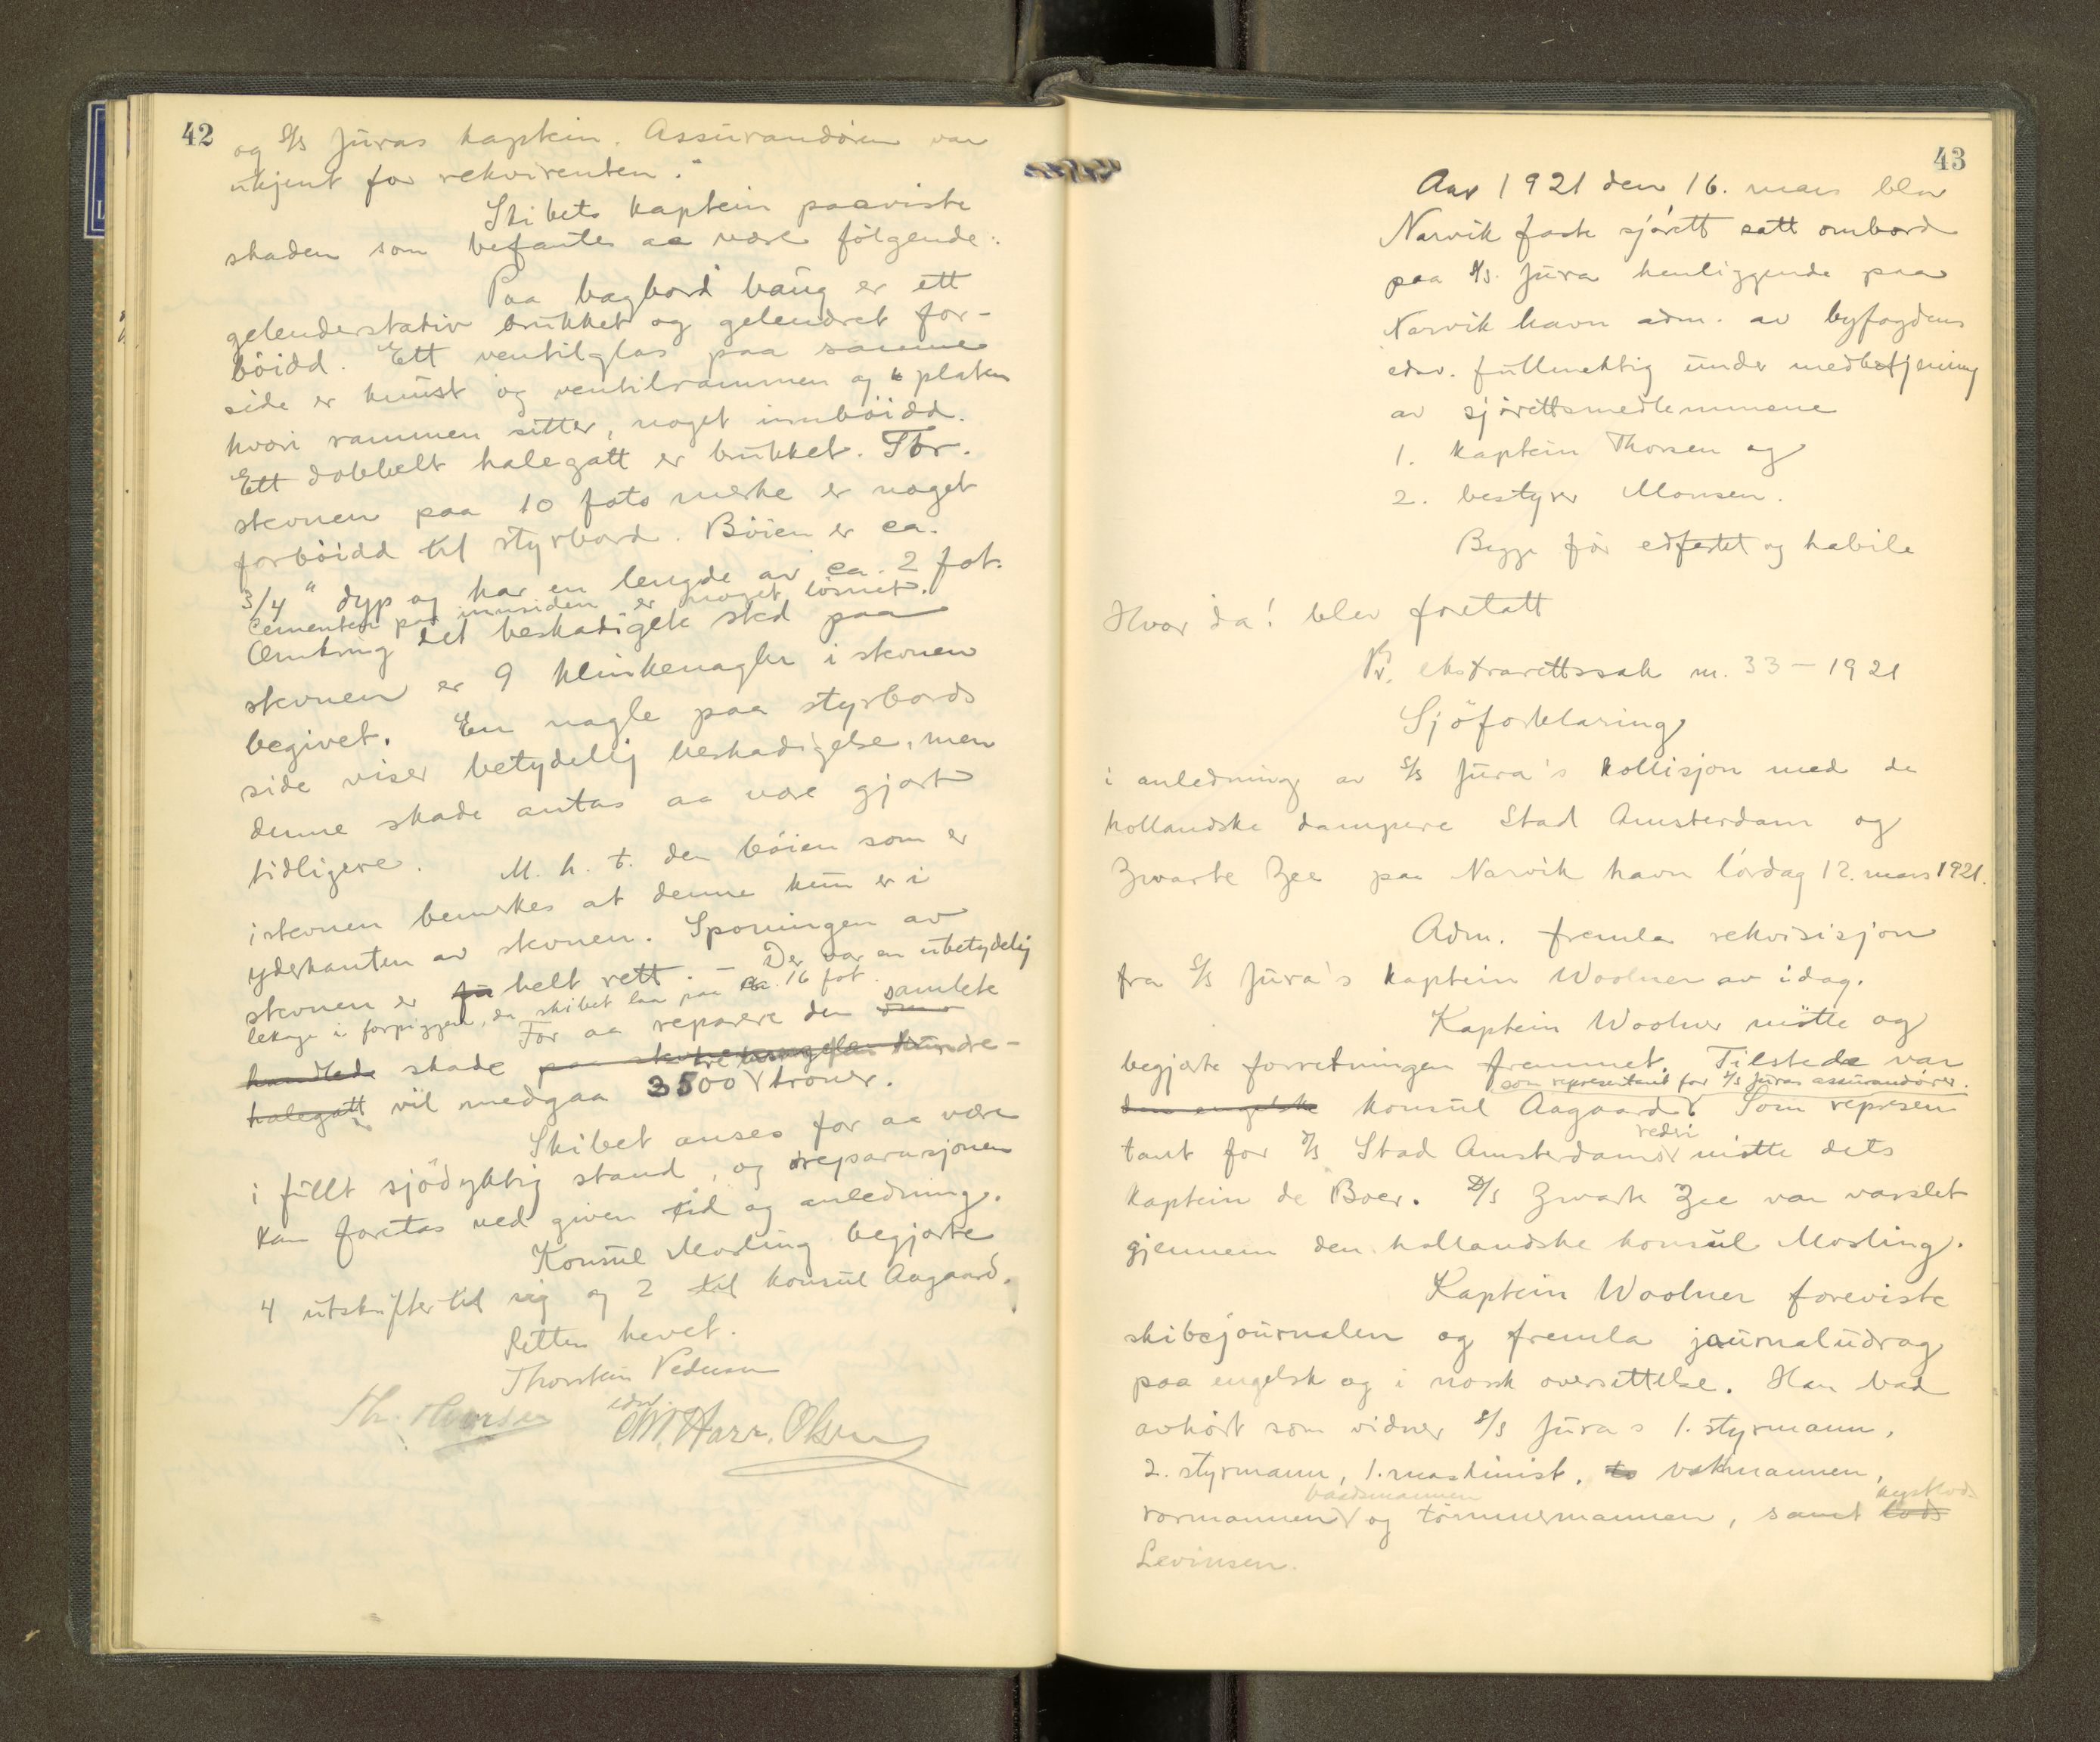 42
og S/S Juras kaptein. Assurandören var
ukjent for rekvirenten."
Skibets kaptein paaviste
skaden som befantes aa være følgende:
Paa bagbord baug er ett
gelenderstativ brukket og gelendret for-
böidd. Ett ventilglas paa samme
side er knust og ventilrammen og platen
hvori rammen sitter, noget innböidd.
Ett dobbelt halegatt er brukket. For-
stevnen paa 10 fots merke er noget
forböidd til styrbord. Böien er ca.
3/4 " dyp og har en lengde av ca. 2 fot.
Cementen paa innsiden er noget lösnet.
Omkring det beskadigete sted paa
stevnen er 9 klinkenagler i stevnen
begivet. En nagle paa styrbords
side viser betydelig beskadigelse, men
denne skade antas aa være gjort
tidligere. M. h. t. den böien som er
i stevnen bemerkes at denne kun er i
yderkanten av stevnen. Sponingen av
stevnen er helt rett. - Der var en ubetydelig
lekage i forpiggen, da skibet laa paa ca. 16 fot.
For aa reparere den samlete
skade
halegatt vil medgaa 3500 kroner.
Skibet anses for aa være
i fullt sjödyktig stand, og reparasjonen
kan foretas ved given tid og anledning.
Konsul Mosling begjærte
4 utskrifter til sig og 2 til konsul Aagaard.
Retten hevet.
Thorstein Pedersen
edsv.
Th. Thorsen M. Harr. Olsen
43
Aar 1921 den 16. mars blev
Narvik faste sjörett satt ombord
paa S/S. Jura henliggende paa
Narvik havn adm. av byfogdens
edsv. fullmektig under medbetjening
av sjörettsmedlemmene
1. kaptein Thorsen og
2. bestyrer Monsen.
Begge för edfestet og habile
Hvor da! blev foretatt
Nr. ekstrarettssak nr. 33 - 1921
Sjöforklaring
i anledning av S/S Jura's kollisjon med de
hollandske dampere Stad Amsterdam og
Zwarte Zee paa Narvik havn lördag 12. mars 1921.
Adm. fremla rekvisisjon
fra S/S Jura's kaptein Woolner av idag.
Kaptein Woolner mötte og
begjærte forretningen fremmet. Tilstede var
som representant for S/S Juras assurandörer.
den engelske konsul Aagaard. Som represen
tant for D/S Stad Amsterdams rederi mötte dets
kaptein de Boer. D/S Zwarte Zee var varslet
gjennem den hollandske konsul Mosling.
Kaptein Woolner foreviste
skibsjournalen og fremla journaludrag
paa engelsk og i norsk oversettelse. Han bad
avhört som vidner S/S Jura s 1. styrmann,
2. styrmann, 1. maskinist, vaktmannen,
baadsmannen kystlods
rormannen og tömmermannen, samt lods
Levinsen.